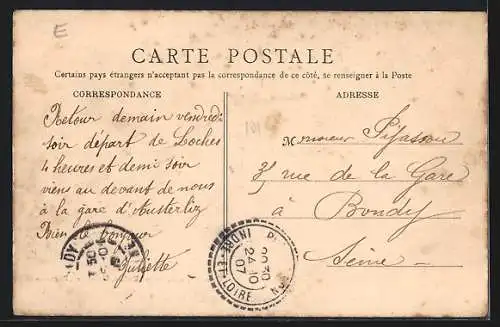 E
CARTE POSTALE
Certains pays étrangers n'acceptant pas la correspondance de ce côté, se renseigner à la Poste
CORRESPONDANCE
ADRESSE
Retour demain vendredi
soir départ de Loches
4 heures et demi soir
viens au devant de nous
à la gare d'Austerlitz
Bien le bonjour
Juliette
Monsieur
3, rue de la Gare
à Bondy
Seine
20 30
24 10
07
ET-LOIRE